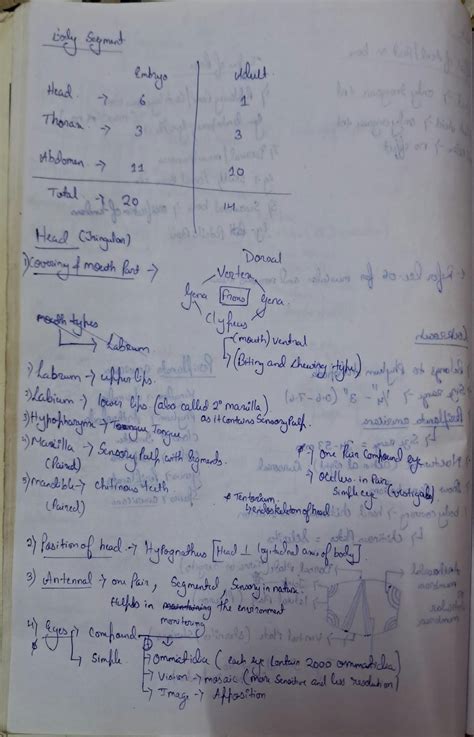 Body Segment
Embryo Adult
Head -> 6 1
Thorax -> 3 3
Abdomen -> 11 10
Total -> 20 14
Head (Triangular)
1) Covering of mouth Part ->
Dorsal
Vertex
Gena Frons Gena
Clypeus
(mouth) ventral
(Biting and Chewing type)
mouth types
Labrum
1) Labrum -> upper lips.
2) Labium -> lower lips (also called 2° maxilla)
as it Contains Sensory Palp.
3) Hypopharynx -> Tongue Tongue
4) Maxilla -> Sensory Palp with Pigments.
(Paired)
5) mandible -> chitinous teeth
(Paired)
-> one Pair Compound eye
-> Ocellus in Pair
Simple eye (Vestigial)
* Tentorium
Endoskeleton of head
2) Position of head -> Hypognathus [Head ⊥ logitudinal axis of body]
3) Antennal -> one Pair, Segmental, Sensory in nature
Helps in the environment
monitoring
4) Eyes -> Compound
-> Simple
-> Ommatidia (each eye Contain 2000 ommatidia)
-> Vision -> mosaic (more Sensitive and less resolution)
-> Image -> Apposition